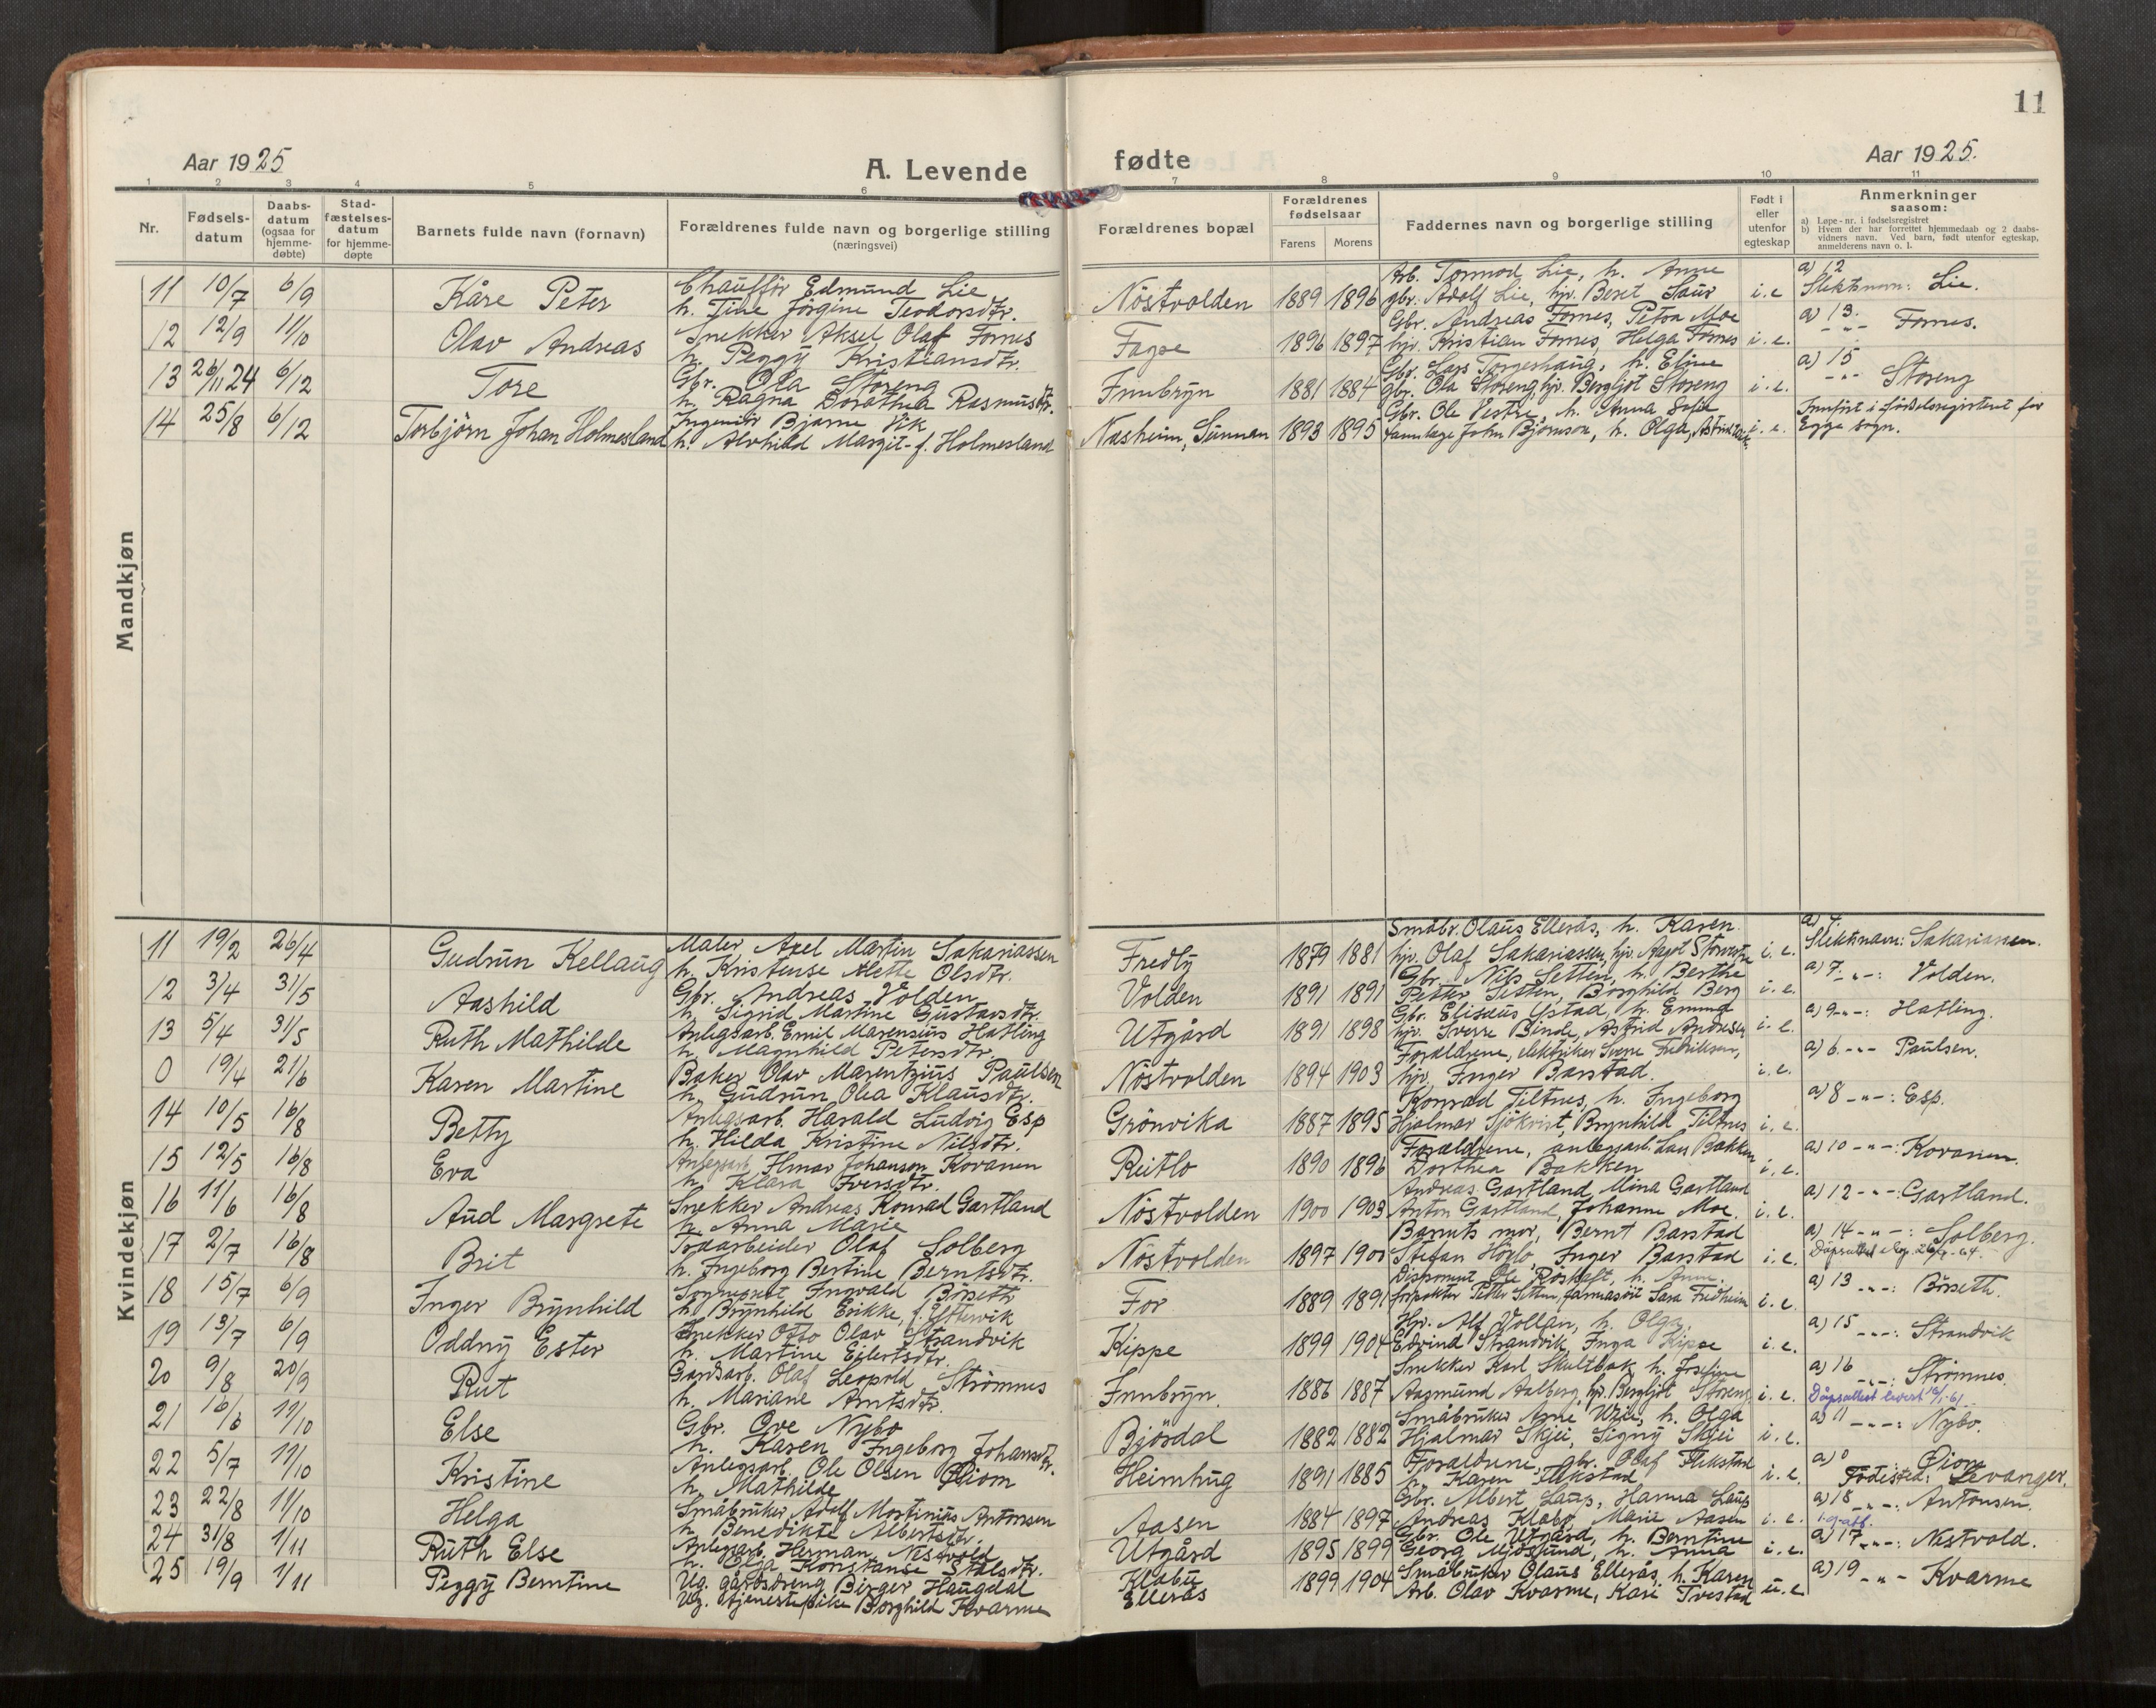 11
Aar 1925
A. Levende
fødte
Aar 1925.
1 2 3 4 5 6 7 8 9 10 11
Nr.
Fødsels-
datum
Daabs-
datum
(ogsaa for
hjemme-
døbte)
Stad-
fæstelses-
datum
for hjemme-
døpte
Barnets fulde navn (fornavn)
Forældrenes fulde navn og borgerlige stilling
(næringsvei)
Forældrenes bopæl
Forældrenes
fødselsaar
Farens
Morens
Faddernes navn og borgerlige stilling
Født i
eller
utenfor
egteskap
Anmerkninger
saasom:
a) Løpe-nr. i fødselsregistret
b) Hvem der har forrettet hjemmedaab og 2 daabs-
vidners navn. Ved barn, født utenfor egteskap,
anmelderens navn o. l.
Mandkjøn
11 10/7 6/9 Kåre Peter
Chauffør Edmund Lie
h. Tine Jörgine Teodorsdtr.
Nöstvolden 1889 1896
Arb. Tormod Lie, h. Anne
gbr. Adolf Lie, hjv. Beret Saur
i.e
a) 12
Slektsnavn: Lie.
12 12/9 11/10 Olav Andreas
Snekker Aksel Olaf Fornes
h. Peggÿ Kristiansdtr.
Fagse 1896 1897
Gbr. Andreas Fornes, Petra Moe
hjv. Kristian Fornes, Helga Fornes
i.e.
a) 13.
-"- Fornes.
13 26/11 24 6/12 Tore
Gbr. Ola Storeng
h. Ragna Dorothea Rasmusdtr.
Innbrÿn 1881 1884
Gbr. Lars Torgeshaug, h. Eline
gbr. Ola Storeng, hjv. Bergljot Storeng
i.e.
a) 15
-"- Storeng
14 25/8 6/12 Torbjörn Johan Holmesland
Ingeniör Bjarne Vik
h. Alvhild Margit f. Holmesland
Nasheim, Sunnan 1893 1895
Gbr. Ole Vestre, h. Anna Sofie
tannlege John Björnson, h. Olga,
i.e.
Innfört i födselsregisteret for
Egge sogn.
Kvindekjøn
11 19/2 26/4 Gudrun Kellaug
Maler Axel Martin Sakariassen
h. Kristense Alette Olsdtr.
Fredlÿ 1879 1881
Småbr. Olaus Ellerås, h. Karen
hjv. Olaf Sakariassen, hjv. Aagot
i.e.
Slektsnavn: Sakariassen.
12 3/4 31/5 Aashild
Gbr. Andreas Volden
h. Sigrid Martine Gustavsdtr.
Volden 1891 1891
Gbr. Nils Setten, h. Berthe
Petter Setten, Borghild Berg
i.e.
a) 7. -"-: Volden.
13 5/4 31/5 Ruth Mathilde
Anlegsarb. Emil Marensius Hatling
h. Magnhild Petersdtr.
Utgård 1891 1898
Gbr. Elisæus Ystad, h. Emma
hjv. Sverre Binde, Astrid Andresen
i.e.
a) 9 -"-: Hatling.
0 19/4 21/6 Karen Martine
Baker Olav Marentzius Paulsen
h. Gudrun Olea Klausdtr.
Nöstvolden 1894 1903
Forældrene, elektriker Sverre Fredriksen,
hjv. Inger Barstad.
i.e.
a) 6. -"- Paulsen.
14 10/5 16/8 Betty
Anlegsarb. Harald Ludvig Esp
h. Hilda Kristine Nilsdtr.
Grönvika 1887 1895
Konrad Tiltnes, h. Ingeborg
Hjalmar Sjökvist, Brynhild Tiltnes
i.e.
a) 8 -"-: Esp.
15 12/5 16/8 Eva
Anlegsarb. Ilmar Johanson Kovanen
h. Klara Iversdtr.
Rutlo 1890 1896
Forældrene, anlegsarb. Lars Bakken
Dorthea Bakken
i.e.
a) 10 -"-: Kovanen.
16 11/6 16/8 Aud Margrete
Snekker Andreas Konrad Gartland
h. Anna Marie
Nöstvolden 1900 1903
Andreas Gartland, Mina Gartland
Anton Gartland, Johanne Moe.
i.e.
a) 12 -"-: Gartland.
17 2/7 16/8 Brit
Olaf Solberg
h. Ingeborg Bertine Berntsdtr.
Nöstvolden 1897 1900
Barnets mor, Bernt Barstad
Stefan, Inger Barstad
i.e.
a) 14 -"-: Solberg.
18 15/7 6/9 Inger Brÿnhild
Sogneprest Ingvald Börseth
h. Brÿnhild Erikke, f. Yttervik
For 1889 1891
Disponent Ole Röskaft, h. Anne.
Petter Setten, farmasöit Sara Fredheim
i.e.
a) 13 -"-: Börseth.
19 13/7 6/9 Oddnÿ Ester
Snekker Otto Olav Strandvik
h. Martine Eilertsdtr.
Kippe 1899 1904
Hjv. Alf Vollan, h. Olga,
Edvind Strandvik, Inga Kippe
i.e.
a) 15 -"-: Strandvik
20 9/8 20/9 Rut
Gårdsarb. Olaf Leopold Strömnes
h. Mariane Arntsdtr.
Innbrÿn. 1886 1887
Snekker Karl Skultbak, h. Josefine
Aagmund Aalberg, hjv. Bergljot Storeng
i.e.
a) 16 -"-: Strömnes.
Dåpsattest levert
21 16/6 11/10 Else
Gbr. Ove Nybo
h. Karen Ingeborg Johansdtr.
Bjösdal 1882 1882
Småbruker Arne, h. Olga
Hjalmar Skjei, Signÿ Skjei
i.e.
a) 11 -"-: Nybo.
22 5/7 11/10 Kristine
Anlegsarb. Ole Olsen Öiom
h. Mathilde
Heimhug 1891 1885
Forældrene, gbr. Olaf Flekstad
h. Karen Flekstad
i.e.
a) 0 Öiom
Födested: Levanger.
23 22/8 11/10 Helga
Småbruker Adolf Mortinius Antonsen
h. Benedikte Albertsdtr.
Aasen 1884 1897
Gbr. Albert Laup, Hanna Laup
Andreas Klabo, Marie Aasen
i.e.
a) 18 -"-: Antonsen.
24 31/8 1/11 Ruth Else
Anlegsarb. Herman Nestvold
h. Olga Konstanse
Utgård 1895 1899
Gbr. Ole Utgård, h. Berntine
Georg Mjösund, h. Anna
i.e.
a) 17 -"-: Nestvold.
25 19/9 1/11 Peggÿ Berntine
Ug. gårdsdreng Birger Haugdal
Ug. tjenestepike Borghild Kvarme
Klabu
Ellerås
1899 1904
Småbruker Olaus Ellerås, h. Karen
Arb. Olav Kvarme, Kari Tvestad
u.e
a) 19 -"- Kvarme